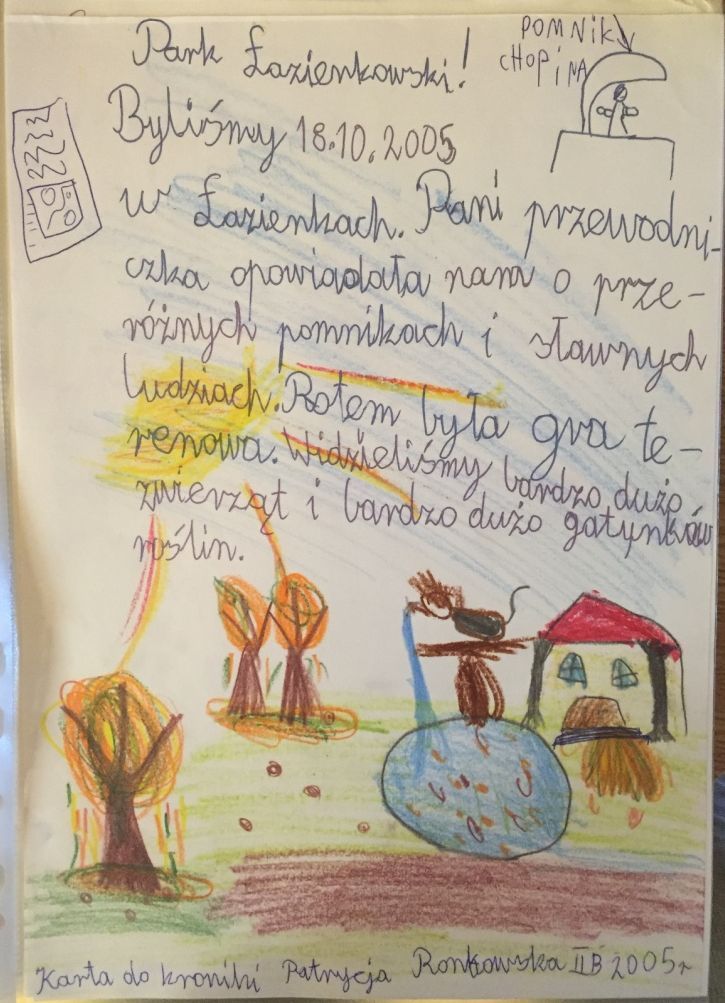 Park Łazienkowski!
POMNIK
CHOPINA
Byliśmy 18.10.2005
w Łazienkach. Pani przewodni-
czka opowiadała nam o prze-
różnych pomnikach i sławnych
ludziach. Potem była gra te-
renowa. Widzieliśmy bardzo dużo
zwierząt i bardzo dużo gatunków
roślin.
Karta do kroniki Patrycja Ronkowska II B 2005r